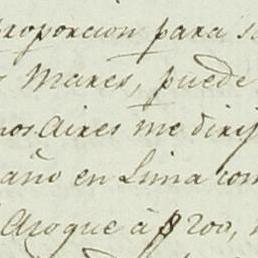 proporcion para s
s Mares, puede
nos Aires me dirij
año en Lima com
Aroque à $ 200,